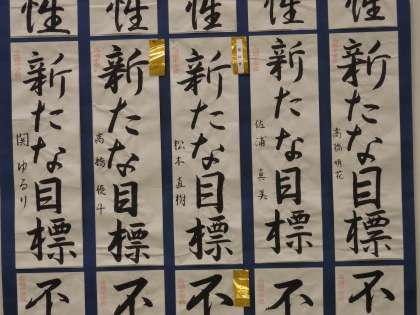 性
性
性
性
性
新たな目標
高橋明花
新たな目標
佐浦真美
新たな目標
松本直樹
新たな目標
高橋優斗
新たな目標
関ゆるり
不
不
不
不
不